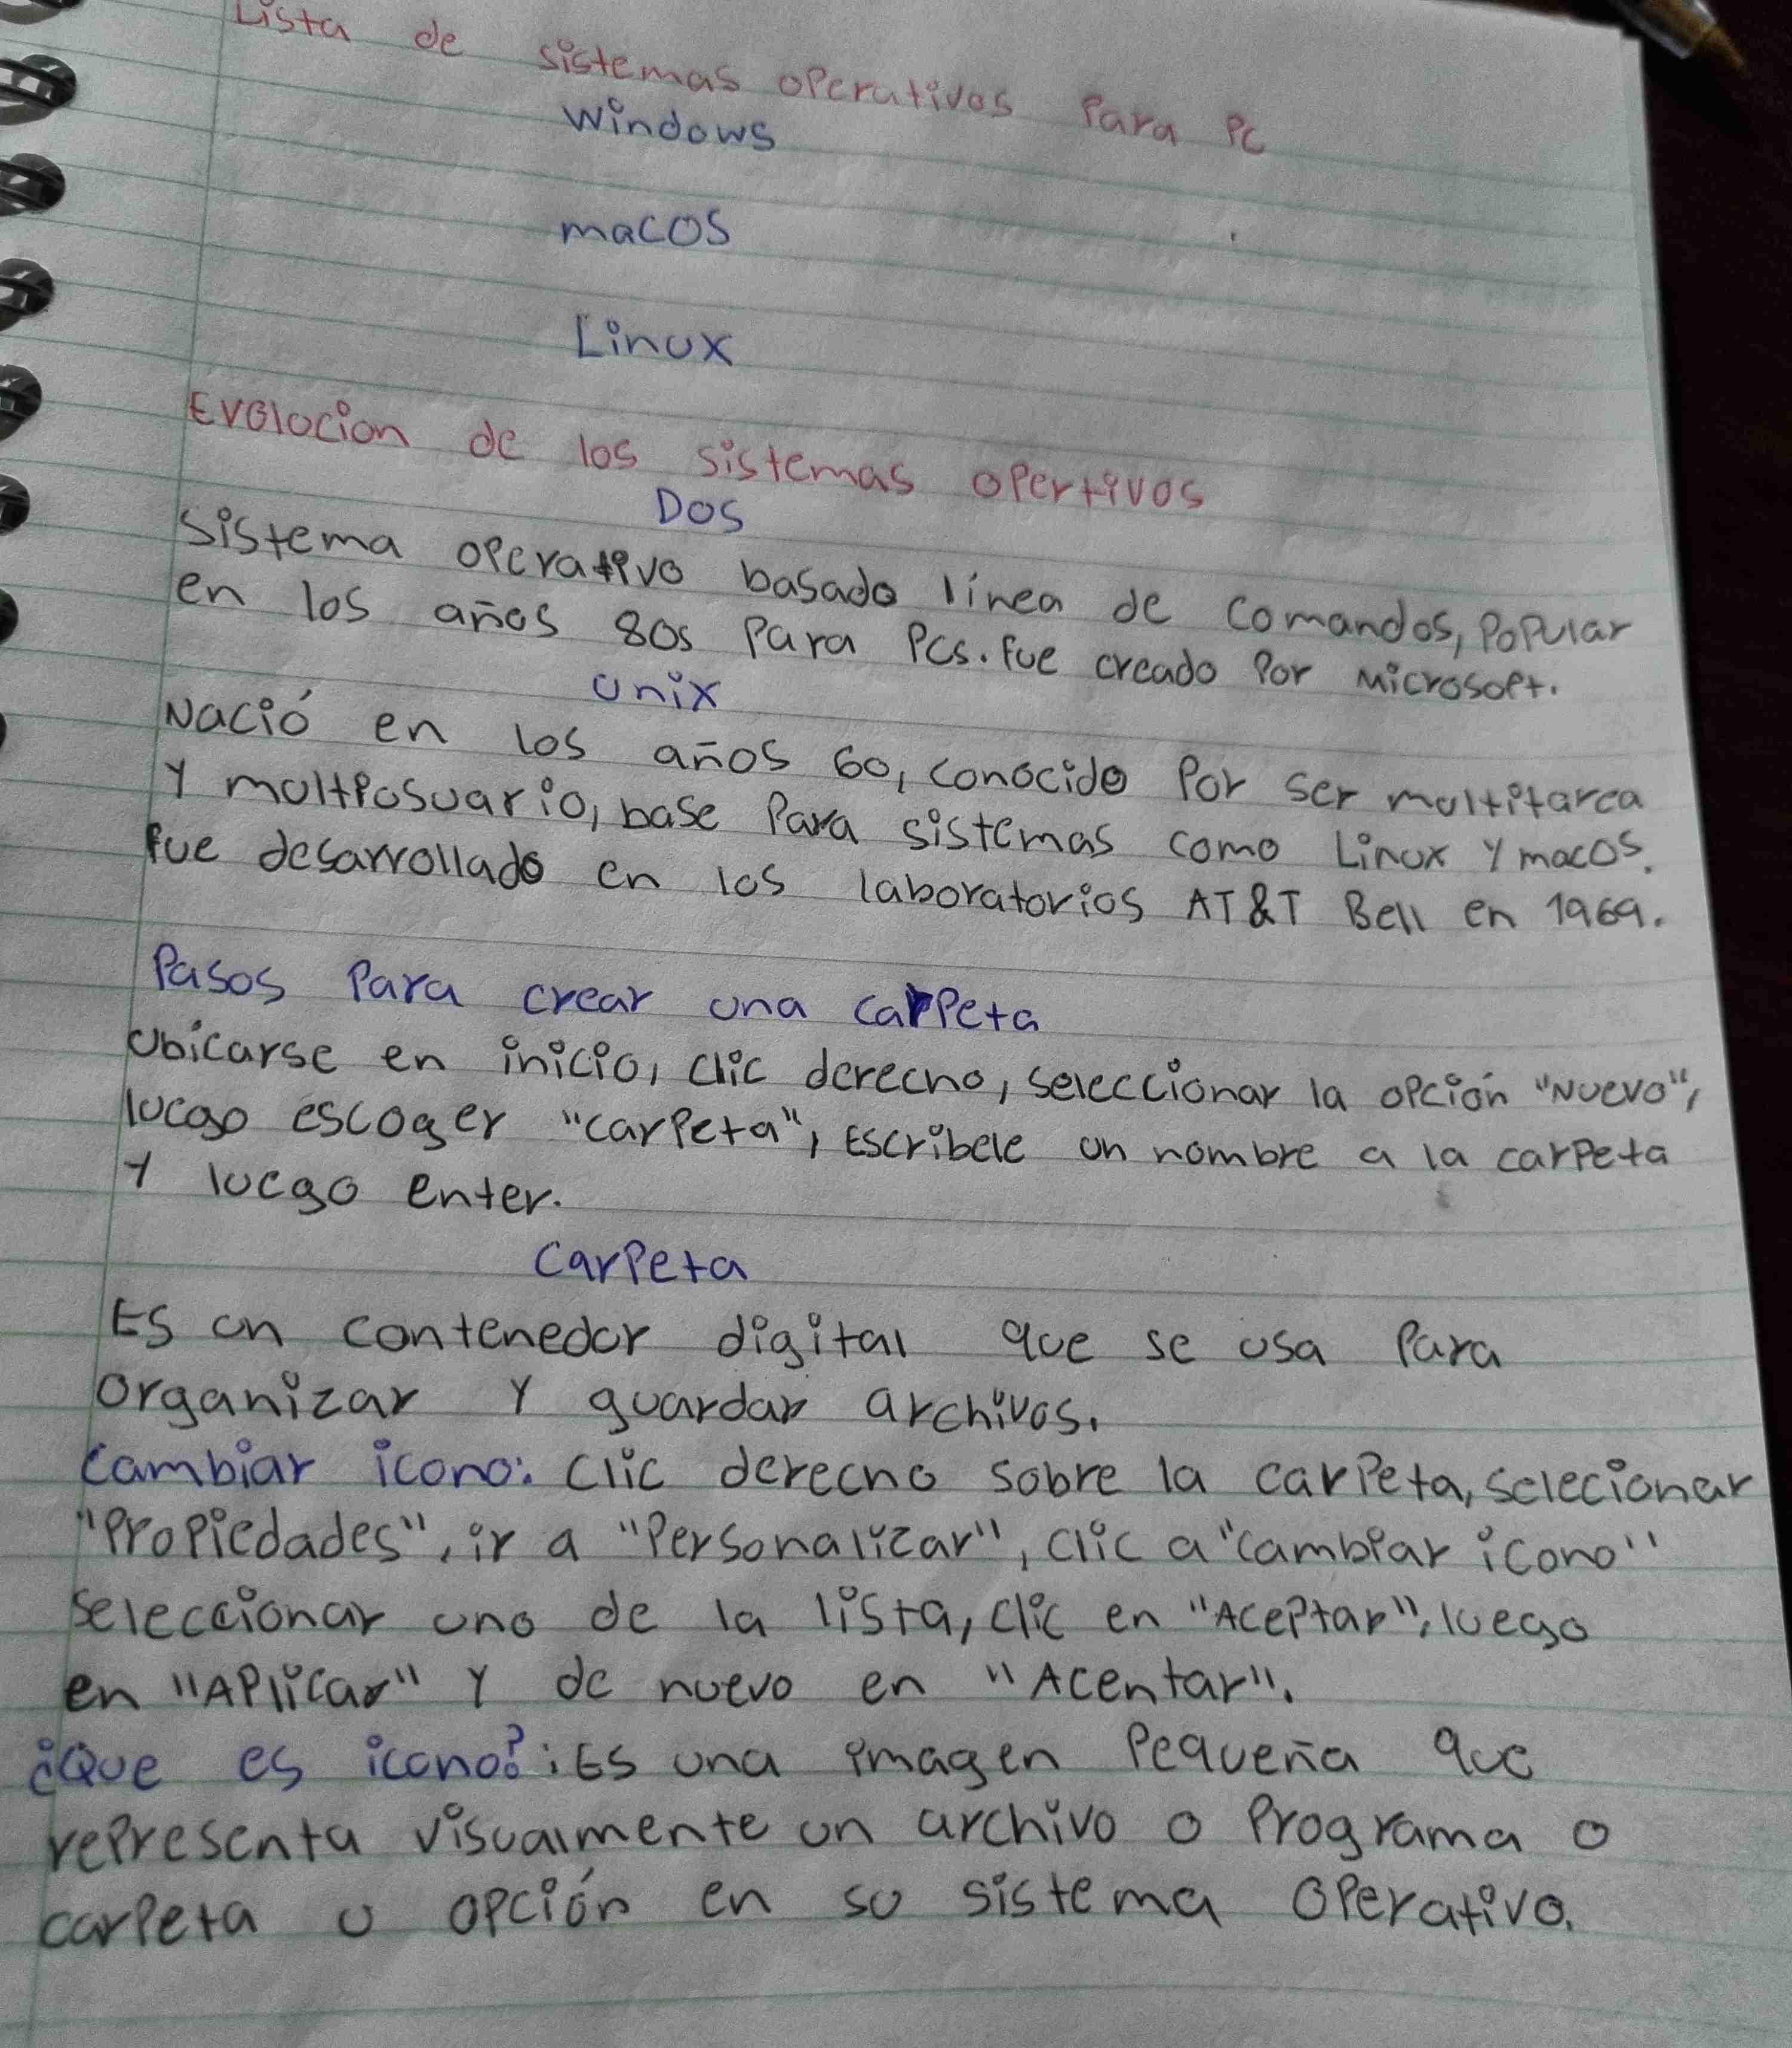 Lista de sistemas operativos Para PC
Windows
macOS
Linux
Evolucion de los sistemas opertivos
DOS
Sistema operativo basado línea de comandos, Popular
en los años 80s Para PCs. fue creado Por Microsoft.
Unix
Nació en los años 60, conocido Por ser multitarea
Y multiusuario, base Para sistemas como Linux Y macOS.
fue desarrollado en los laboratorios AT&T Bell en 1969.
Pasos Para crear una carpeta
Ubicarse en inicio, clic derecho, seleccionar la opción "Nuevo",
luego escoger "carpeta", Escribele un nombre a la carpeta
Y luego enter.
Carpeta
Es un contenedor digital que se usa Para
organizar Y guardar archivos.
Cambiar icono: Clic derecho sobre la carpeta, selecionar
"Propiedades", ir a "Personalizar", clic a "cambiar icono"
seleccionar uno de la lista, clic en "Aceptar", luego
en "Aplicar" Y de nuevo en "Acentar".
¿Que es icono?: Es una imagen Pequeña que
representa visualmente un archivo o Programa o
carpeta u opción en su sistema operativo.